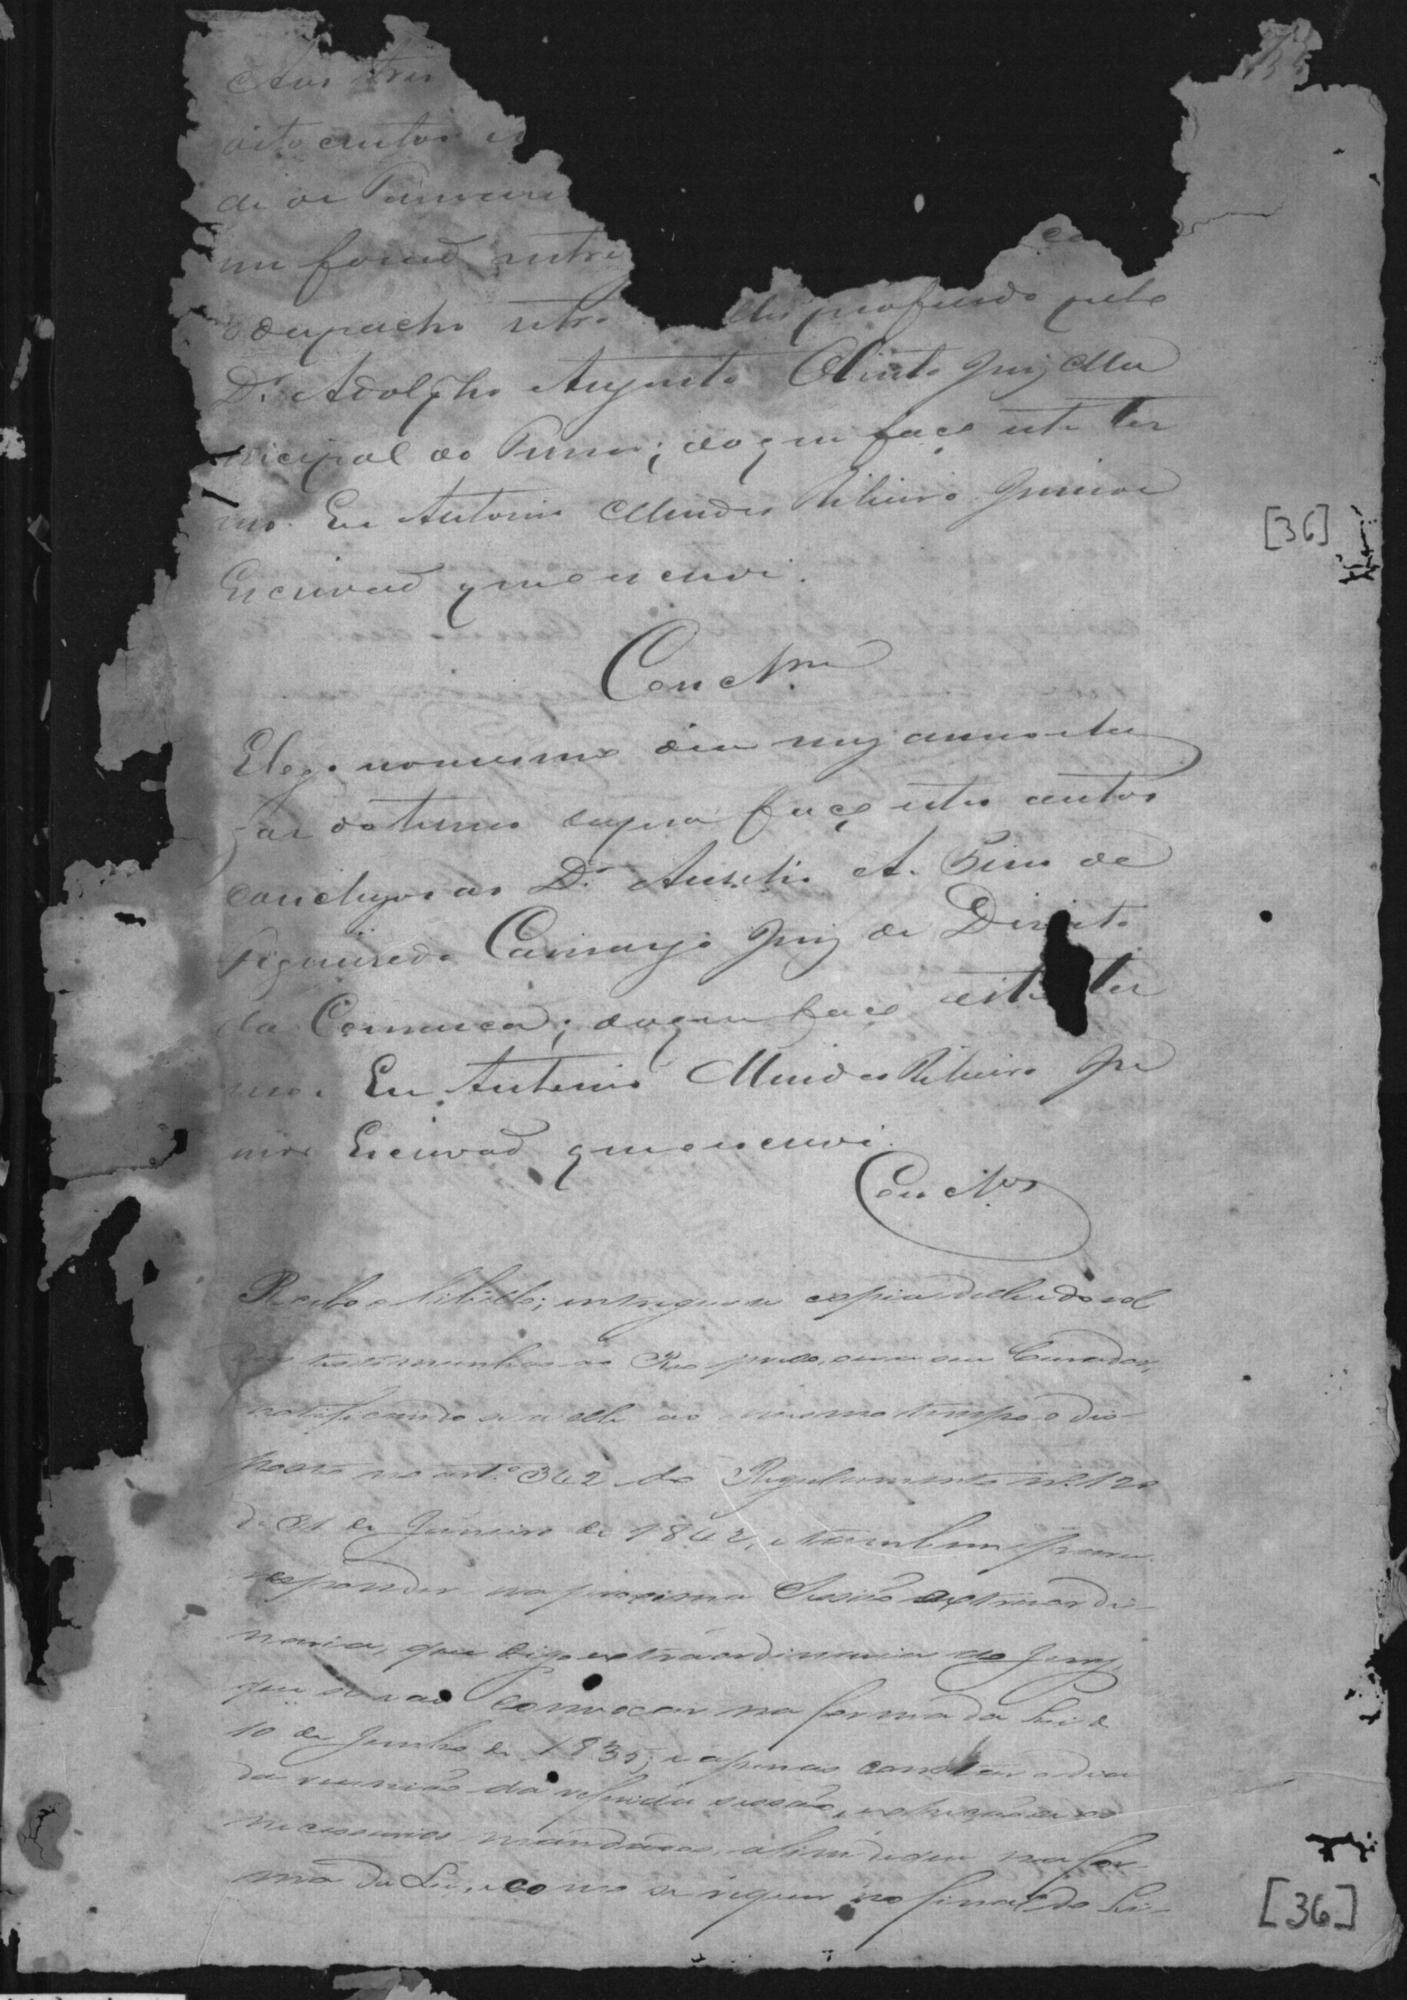 Aos tres
oito centos e
de de Janeiro
me forão entre
o despacho retro profferido pelo
Dr. Adolpho Augusto Olinto Juiz Mu
nicipal do Termo; do que faço este ter
mo. Eu Antonio Mendes Ribeiro Junior
Escrivão que escrevi.
[36]
E logo no mesmo dia mez anno e lu
gar do termo supra faço estes autos
conclusos ao Dr. Aurelio A. Pires de
Figueiredo Camargo Juiz de Direito
da Comarca; do que faço este ter
mo. Eu Antonio Mendes Ribeiro Ju
nior Escrivão que escrevi.
Recebo o libello; entregue-se copia delle e do rol
das testemunhas ao Réo preso, e ao seu Curador,
notificando-se a elle ao mesmo tempo o dis-
posto no art.º 342 do Regulamento nº 120
de 31 de Janeiro de 1842, e tambem para
responder na proxima Sessão extraordi-
naria, que digo extraordinaria do Jury,
que se vae convocar na forma da Lei de
10 de Junho de 1835; e apenas constar o dia
da reunião da referida sessão, expeção-se os
necessarios mandados, afim de que na for-
ma da Lei, e como se requer no final do Li-
[36]